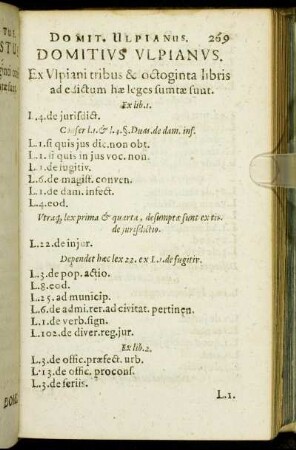 DOMIT. ULPIANUS. 269
DOMITIVS VLPIANVS.
Ex Vlpiani tribus & octoginta libris
ad edictum hæ leges sumtæ sunt.
Ex lib.1.
L.4.de jurisdict.
Confer l.1.& l.4.§.Duas.de dam. inf.
L.1.si quis jus dic.non obt.
L.2.si quis in jus voc. non.
L.1.de fugitiv.
L.6.de magist. conven.
L.1.de dam. infect.
L.4.eod.
Vtraq, lex prima & quarta, desumptæ sunt ex tit.
de jurisdictio.
L.22.de injur.
Dependet hæc lex 22. ex L.1.de fugitiv.
L.3.de pop. actio.
L.8.eod.
L.25.ad municip.
L.6.de admi.rer.ad civitat. pertinen.
L.1.de verb.sign.
L.102.de diver.reg.jur.
Ex lib.2.
L.3.de offic.præfect. urb.
L.13.de offic. procons.
L.3.de feriis.
L.1.